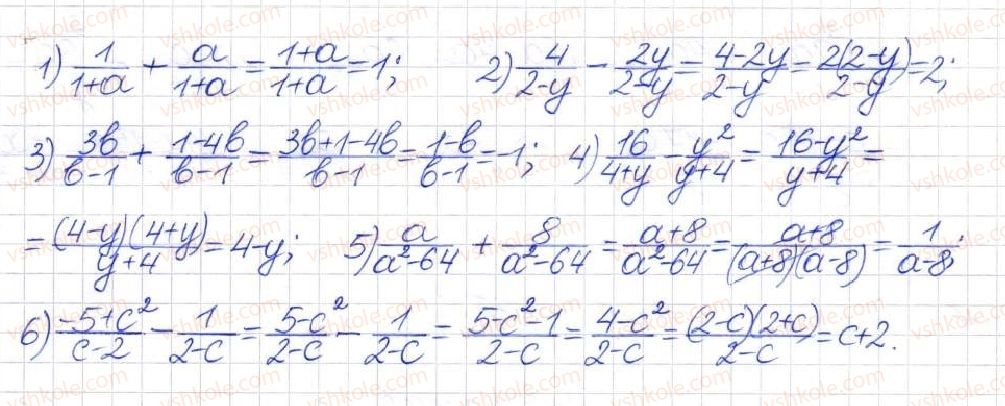 1) 1/(1+a) + a/(1+a) = (1+a)/(1+a) = 1; 2) 4/(2-y) - 2y/(2-y) = (4-2y)/(2-y) = 2(2-y)/(2-y) = 2;
3) 3b/(b-1) + (1-4b)/(b-1) = (3b+1-4b)/(b-1) = (1-b)/(b-1) = -1; 4) 16/(4+y) - y²/(y+4) = (16-y²)/(y+4) =
= (4-y)(4+y)/(y+4) = 4-y; 5) a/(a²-64) + 8/(a²-64) = (a+8)/(a²-64) = (a+8)/((a+8)(a-8)) = 1/(a-8);
6) (-5+c²)/(c-2) - 1/(2-c) = (5-c²)/(2-c) - 1/(2-c) = (5-c²-1)/(2-c) = (4-c²)/(2-c) = (2-c)(2+c)/(2-c) = c+2.
vshkole.com